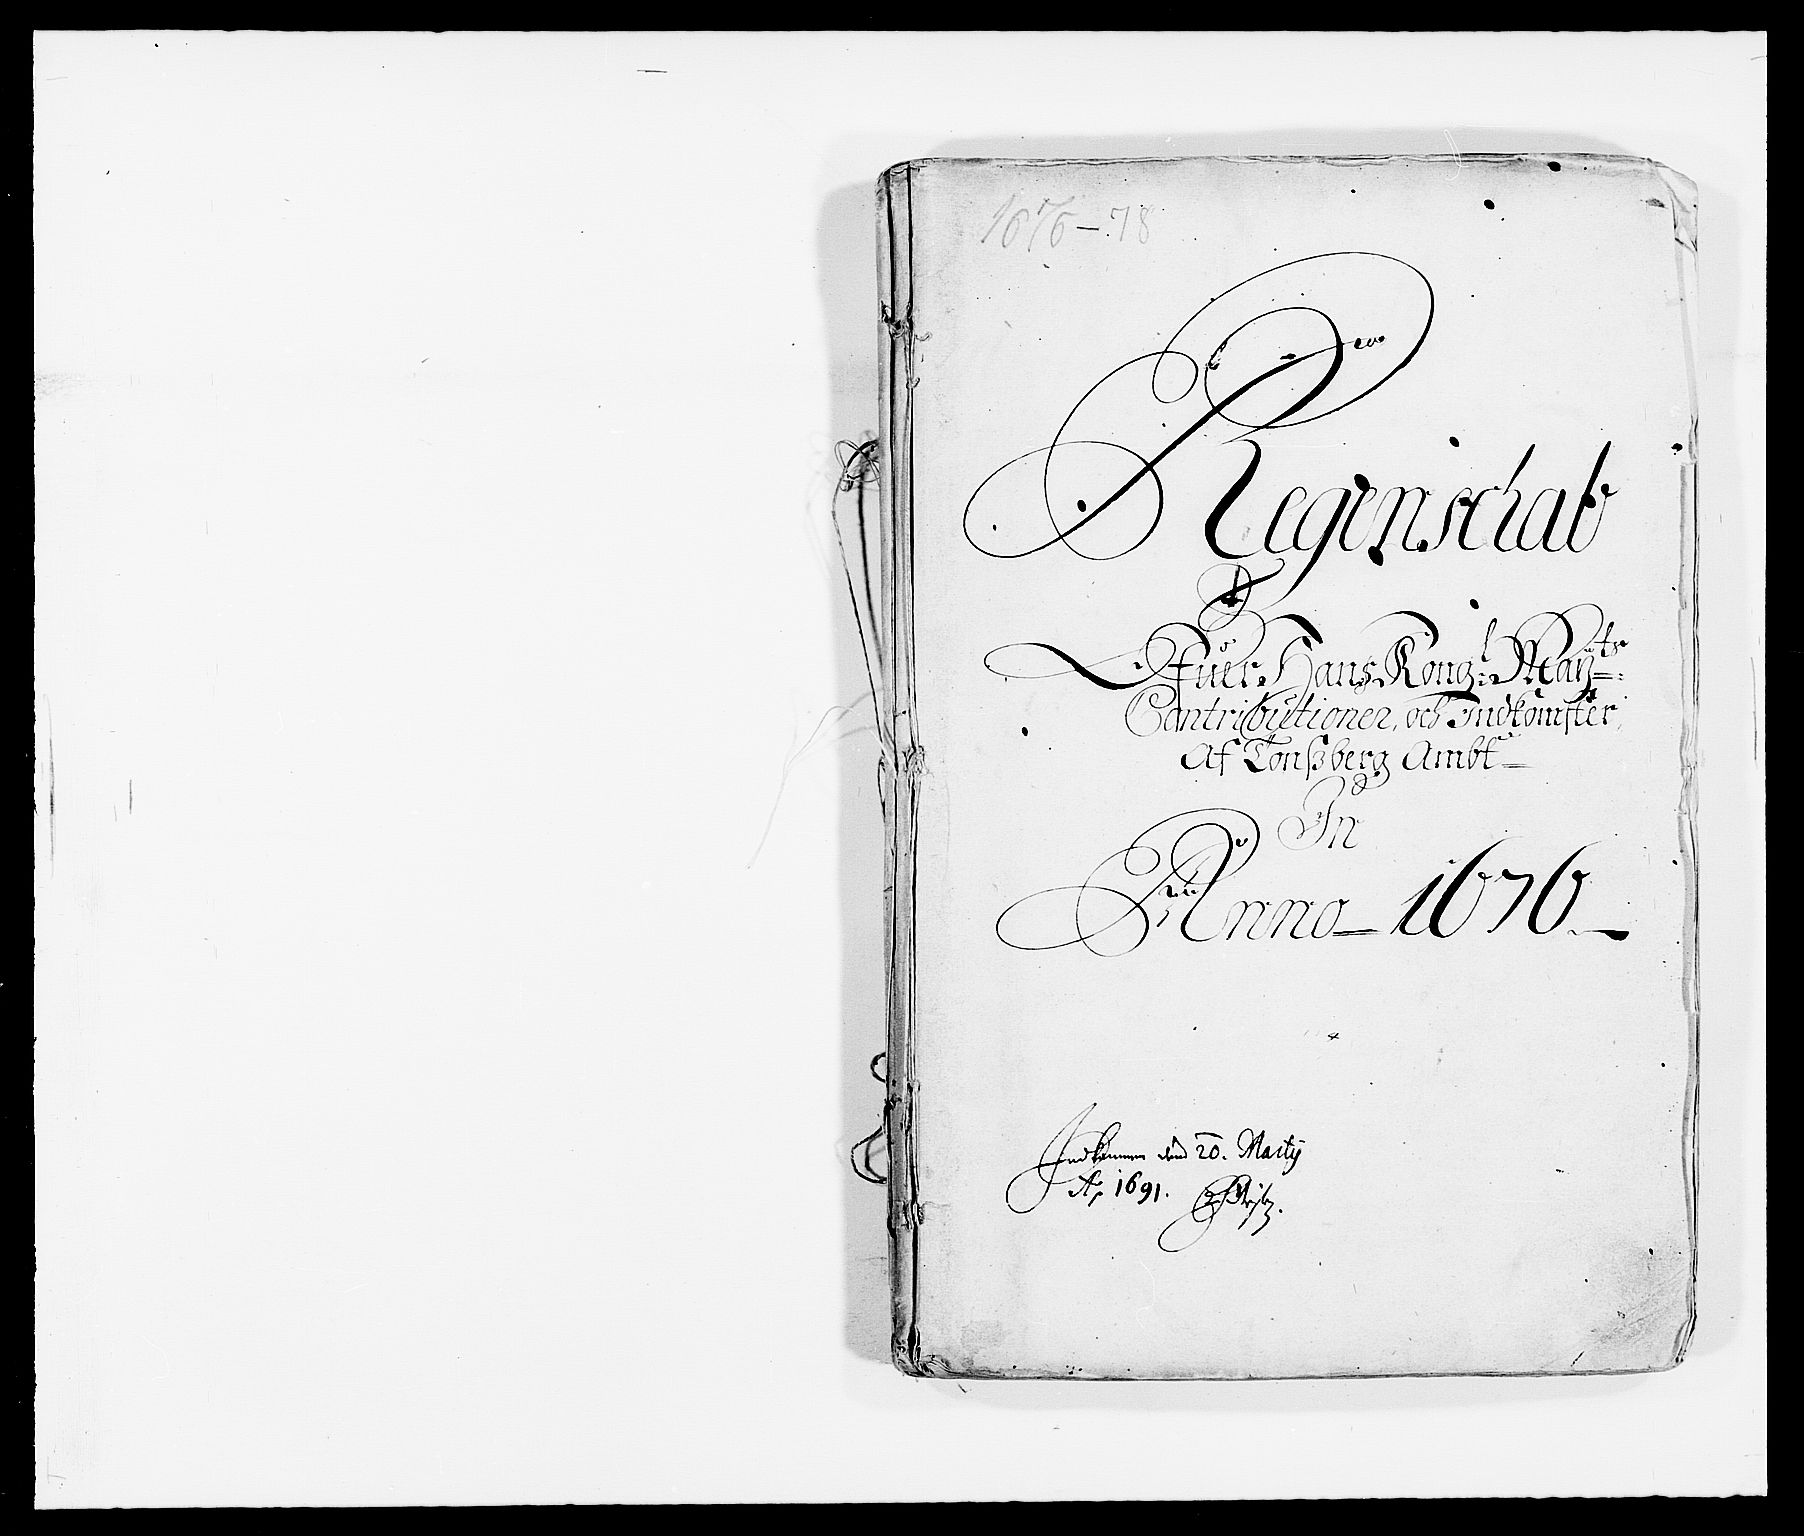 1676-78
Regenschab
Ofuer Hans Kongl: Maÿts:
Contributioner, och Indkomster,
Af Tonßberg Ambt
In
Anno 1676.
Indkommen dend 20. Martij
Ao 1691.